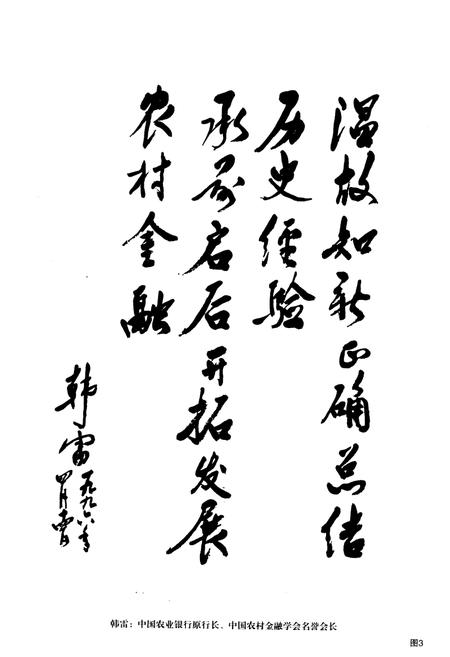 温故知新正确总结
历史经验
承前启后开拓发展
农村金融
韩雷
一九九六年
四月
韩雷：中国农业银行原行长、中国农村金融学会名誉会长
图3